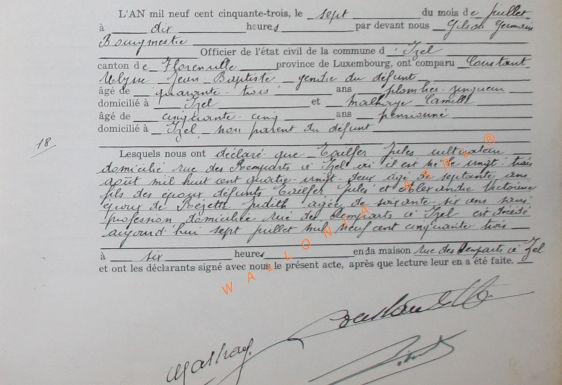 L'AN mil neuf cent cinquante-trois, le sept du mois de juillet
à dix heures par devant nous Gilson Germain
Bourgmestre
Officier de l'état civil de la commune d'Izel
canton de Florenville province de Luxembourg, ont comparu Constant
Ulysse Jean Baptiste gendre du défunt
âgé de quarante-trois ans plombier-zingueur
domicilié à Izel et Malhage Camille
âgé de cinquante-cinq ans pensionné
domicilié à Izel, non parent du défunt
18.
Lesquels nous ont déclaré que Tailfer Jules cultivateur
domicilié rue des Remparts à Izel où il est né le vingt trois
août mil huit cent quatre-vingt-deux âgé de septante ans
fils des époux défunts Tailfer Jules et Alexandre Victorine
époux de Rozette Judith âgée de soixante six ans sans
profession domiciliée rue des Remparts à Izel est décédé
aujourd'hui sept juillet mil neuf cent cinquante trois
à six heures en sa maison rue des Remparts à Izel
et ont les déclarants signé avec nous le présent acte, après que lecture leur en a été faite.